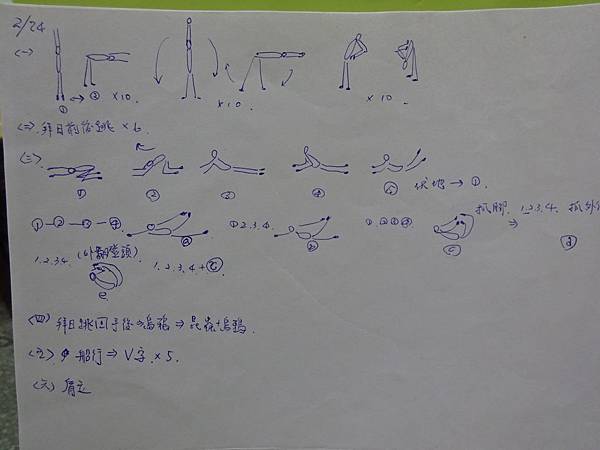 2/24
(一)
① ↔ ② ×10. ×10. ×10.
(二) 拜日前後跳 ×6.
(三).
① ② ③ ④ ⑤ 伏地 → ①.
①–②–③–④ ⓐ ①2.3.4. ⓑ ①.②③④ ⓒ 抓腳. 1.2.3.4. 抓外 ⇒ ⓓ
1.2.3.4. (外翻登頭) e. 1.2.3.4+ⓒ.
(四) 拜日跳回手後→烏鴉 ⇒ 昆蟲+烏鴉.
(五) 船行 ⇒ V字.×5.
(六) 肩立